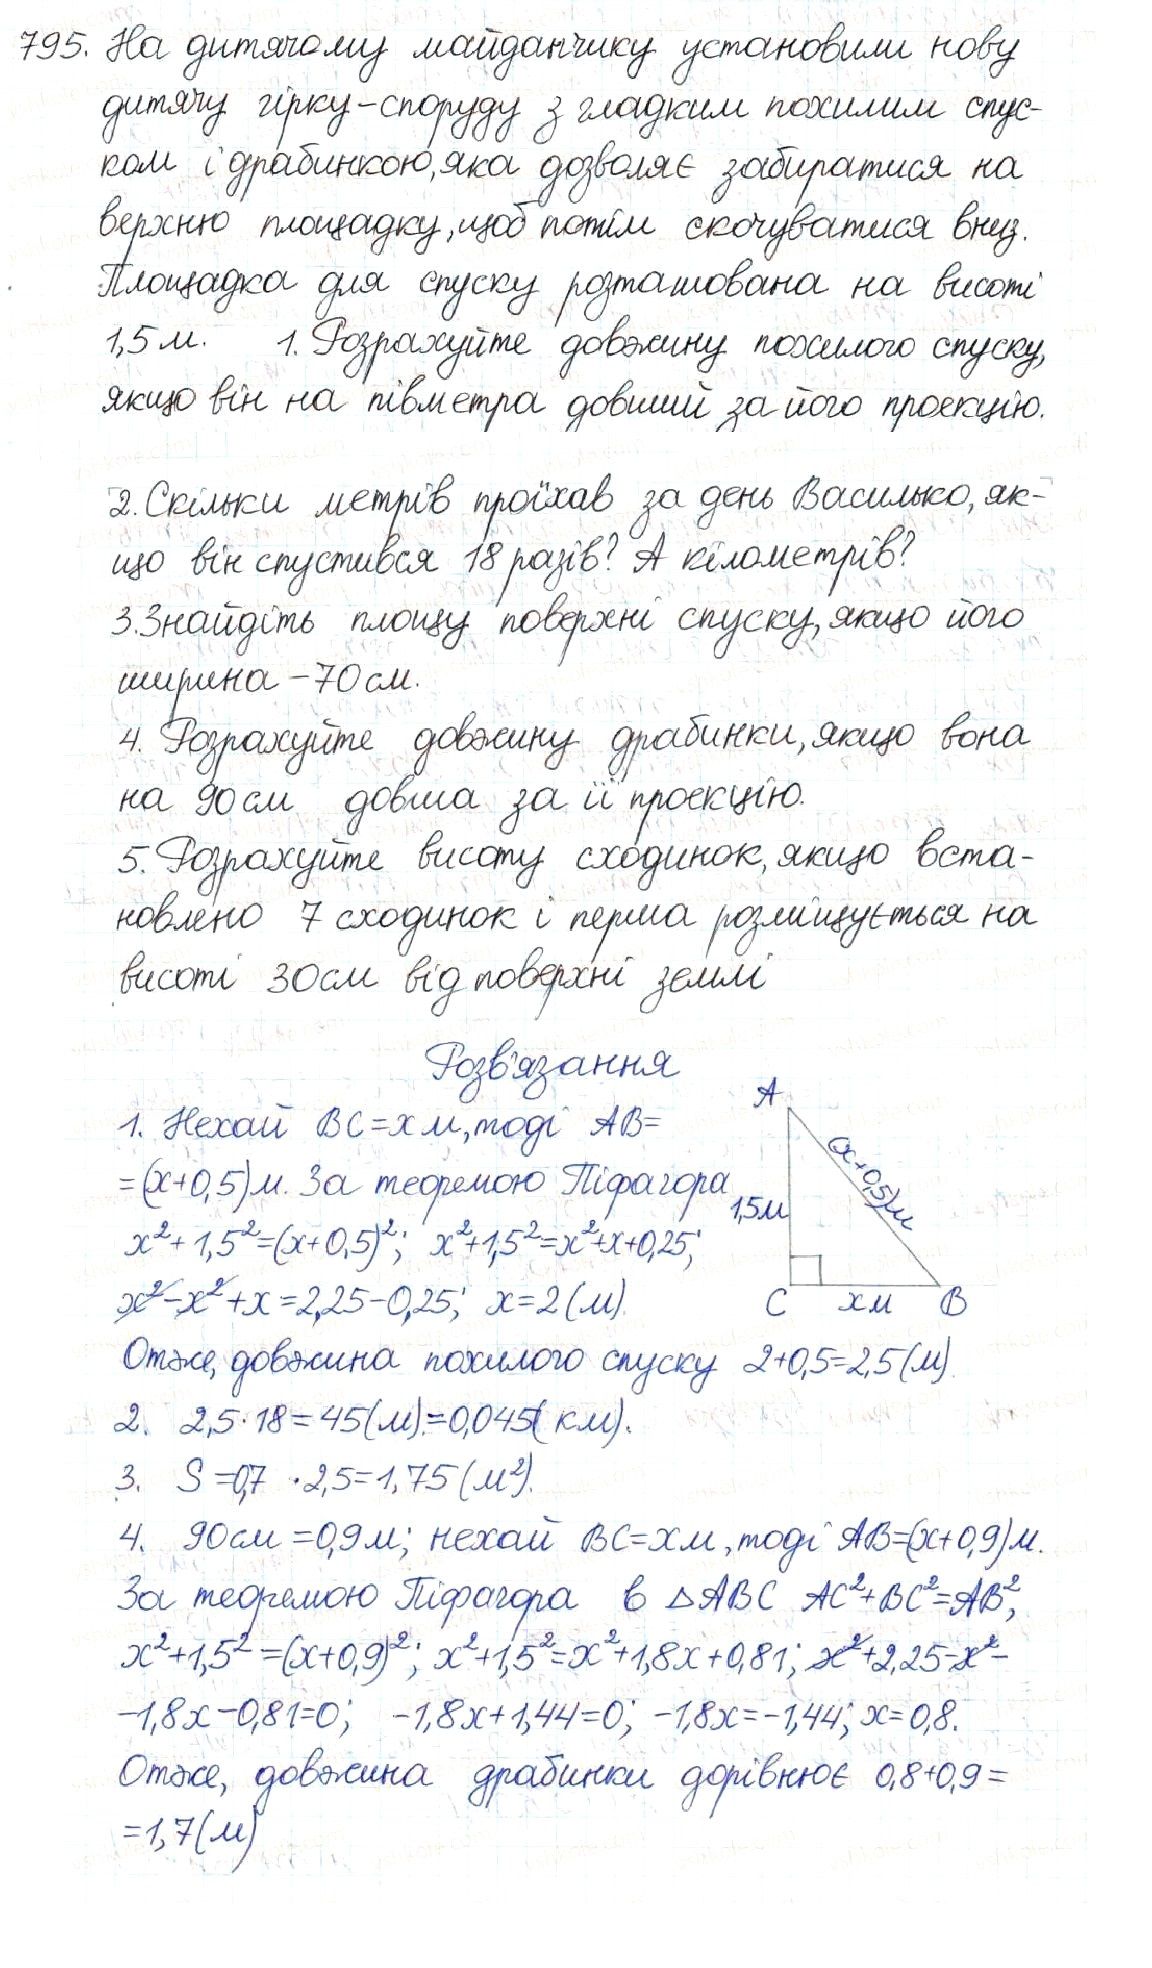 795. На дитячому майданчику установили нову
дитячу гірку-споруду з гладким похилим спус-
ком і драбинкою, яка дозволяє забиратися на
верхню площадку, щоб потім скочуватися вниз.
Площадка для спуску розташована на висоті
1,5 м. 1. Розрахуйте довжину похилого спуску,
якщо він на півметра довший за його проєкцію.
2. Скільки метрів проїхав за день Василько, як-
що він спустився 18 разів? А кілометрів?
3. Знайдіть площу поверхні спуску, якщо його
ширина – 70 см.
4. Розрахуйте довжину драбинки, якщо вона
на 90 см довша за її проєкцію.
5. Розрахуйте висоту сходинок, якщо вста-
новлено 7 сходинок і перша розміщується на
висоті 30 см від поверхні землі
Розв'язання
1. Нехай BC = x м, тоді AB =
= (x+0,5) м. За теоремою Піфагора
x² + 1,5² = (x+0,5)²; x²+1,5² = x²+x+0,25;
x² - x² + x = 2,25 - 0,25; x = 2 (м).
A
(x+0,5) м
1,5 м
C x м B
Отже, довжина похилого спуску 2+0,5=2,5 (м).
2. 2,5 · 18 = 45 (м). = 0,045 (км).
3. S = 0,7 · 2,5 = 1,75 (м²).
4. 90 см = 0,9 м; нехай BC = x м, тоді AB = (x+0,9) м.
За теоремою Піфагора в △ABC AC²+BC²=AB²;
x²+1,5² = (x+0,9)²; x²+1,5² = x²+1,8x+0,81; x²+2,25-x²-
-1,8x-0,81=0; -1,8x+1,44=0; -1,8x=-1,44; x=0,8.
Отже, довжина драбинки дорівнює 0,8+0,9=
=1,7 (м)